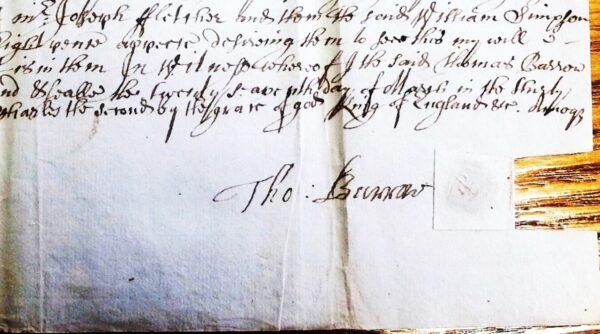 mr. Joseph Ffletcher And them the said William Simpson
Eight pence apeece desireing them to see this my will
is in them In Witnesse whereof I the said Thomas Barrow
nd Sealle the twenty seaventh day of March in the thirty
Charles the second by the grace of god King of England &c. Annoq
Tho: Barrow